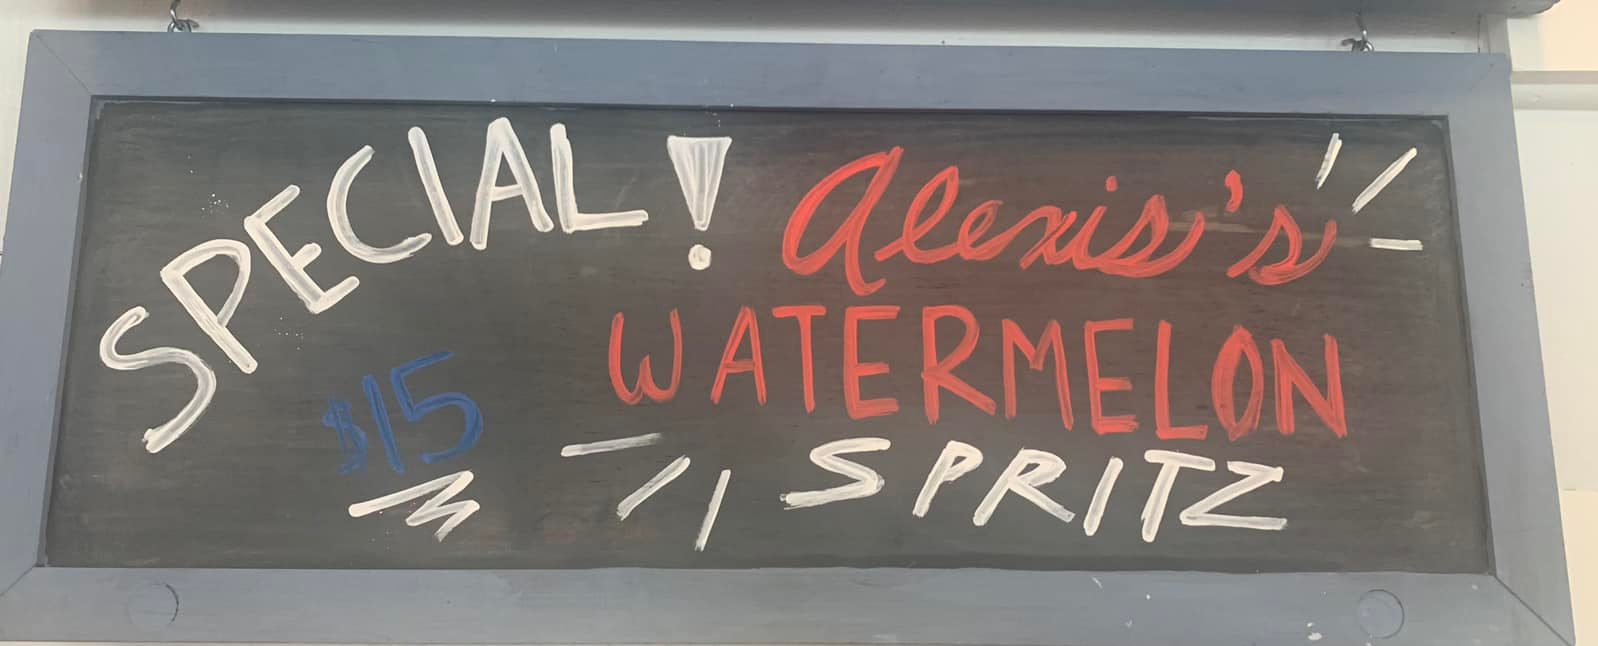 SPECIAL!
$15
Alexis's
WATERMELON
SPRITZ